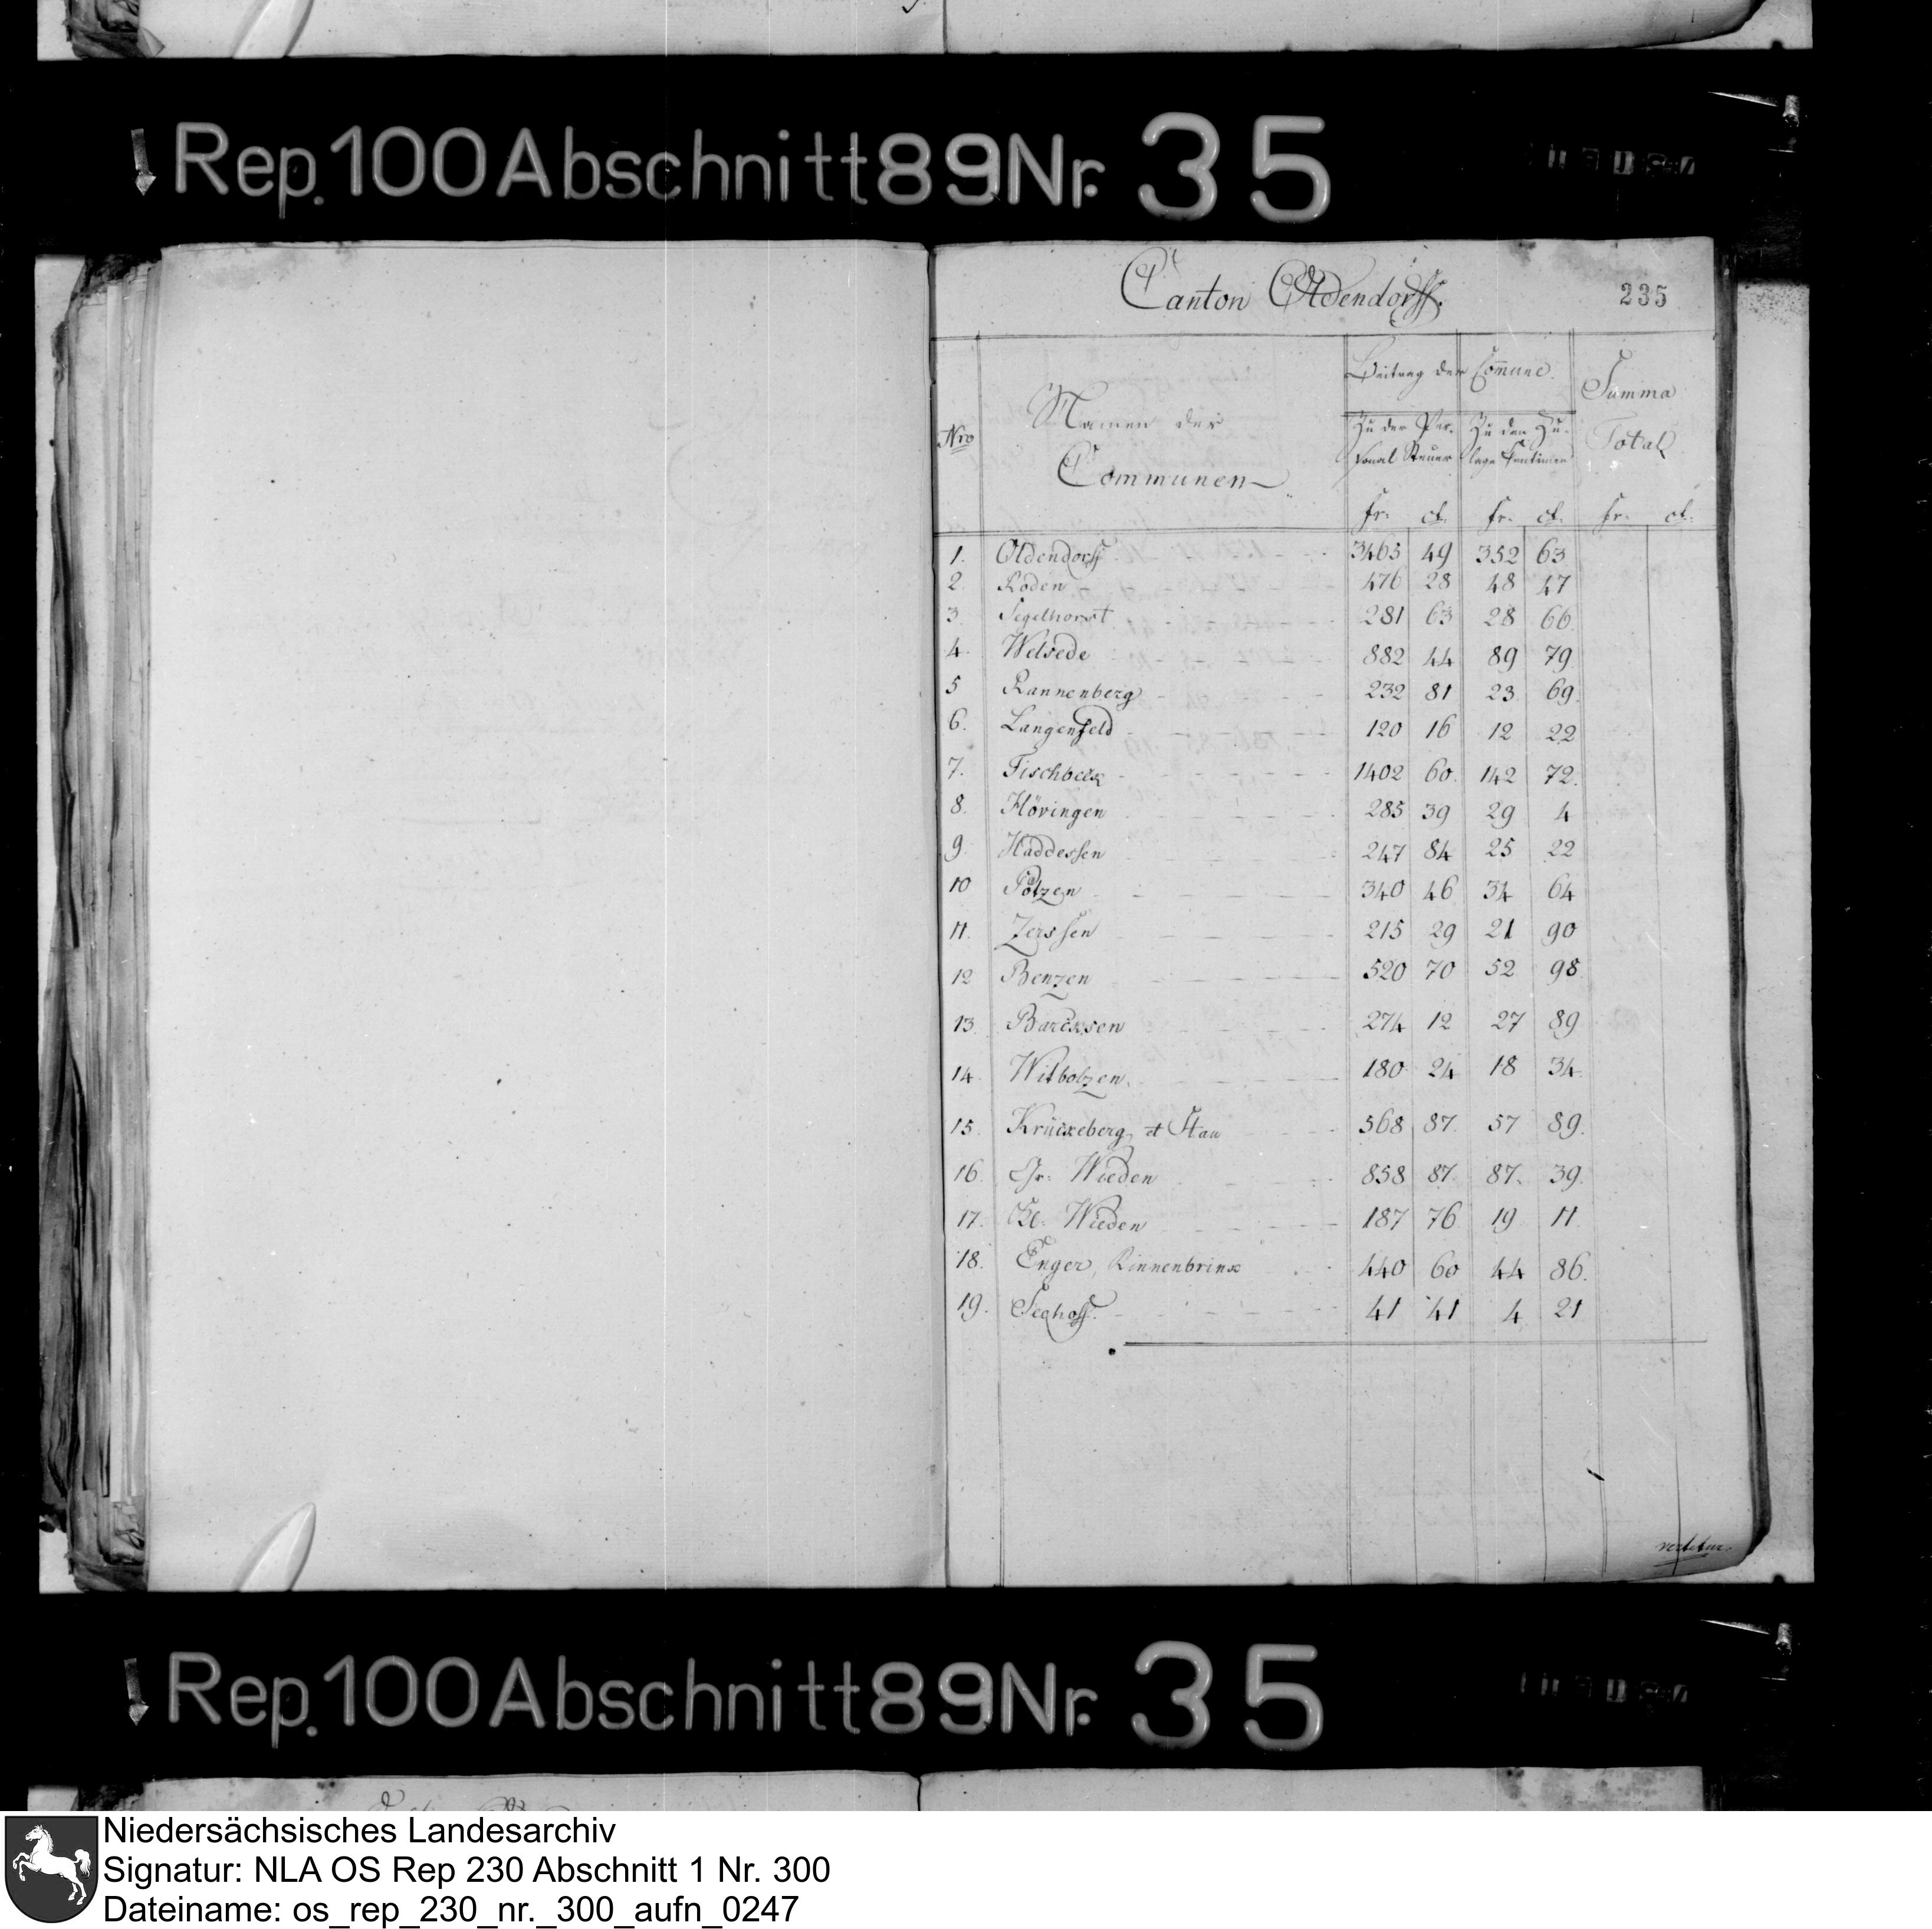 Rep. 100 Abschnitt 89 Nr. 35
Canton Oldendorff.
235
Nro
Namen der
Communen
Beitrag der Commune.
Zu der Per-
sonal Steuer
Zu den Zu-
lage Centimen
Summa
Total
fr. ct. fr. ct. fr. ct.
1. Oldendorff 3465 49 352 63
2. Roden 476 28 48 47
3. Segelhorst 281 63 28 66
4. Welsede 882 44 89 79
5 Rannenberg 232 81 23 69
6. Langenfeld 120 16 12 22
7. Fischbeck 1402 60 142 72
8. Höringen 285 39 29 4
9 Haddessen 247 84 25 22
10 Pötzen 340 46 34 64
11. Zerssen 215 29 21 90
12 Benzen 520 70 52 98
13. Barcksen 274 12 27 89
14. Witbolzen 180 24 18 34
15. Krückeberg et Stau 568 87 57 89
16. Gr. Wieden 858 87 87 39
17. Kl. Wieden 187 76 19 11
18. Enger, Rinnenbrink 440 60 44 86
19. Seehoff 41 41 4 21
vertetur.
Rep. 100 Abschnitt 89 Nr. 35
Niedersächsisches Landesarchiv
Signatur: NLA OS Rep 230 Abschnitt 1 Nr. 300
Dateiname: os_rep_230_nr._300_aufn_0247